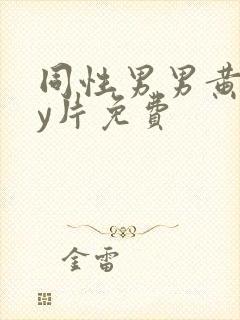 同性男男黄
y片免費
金雷